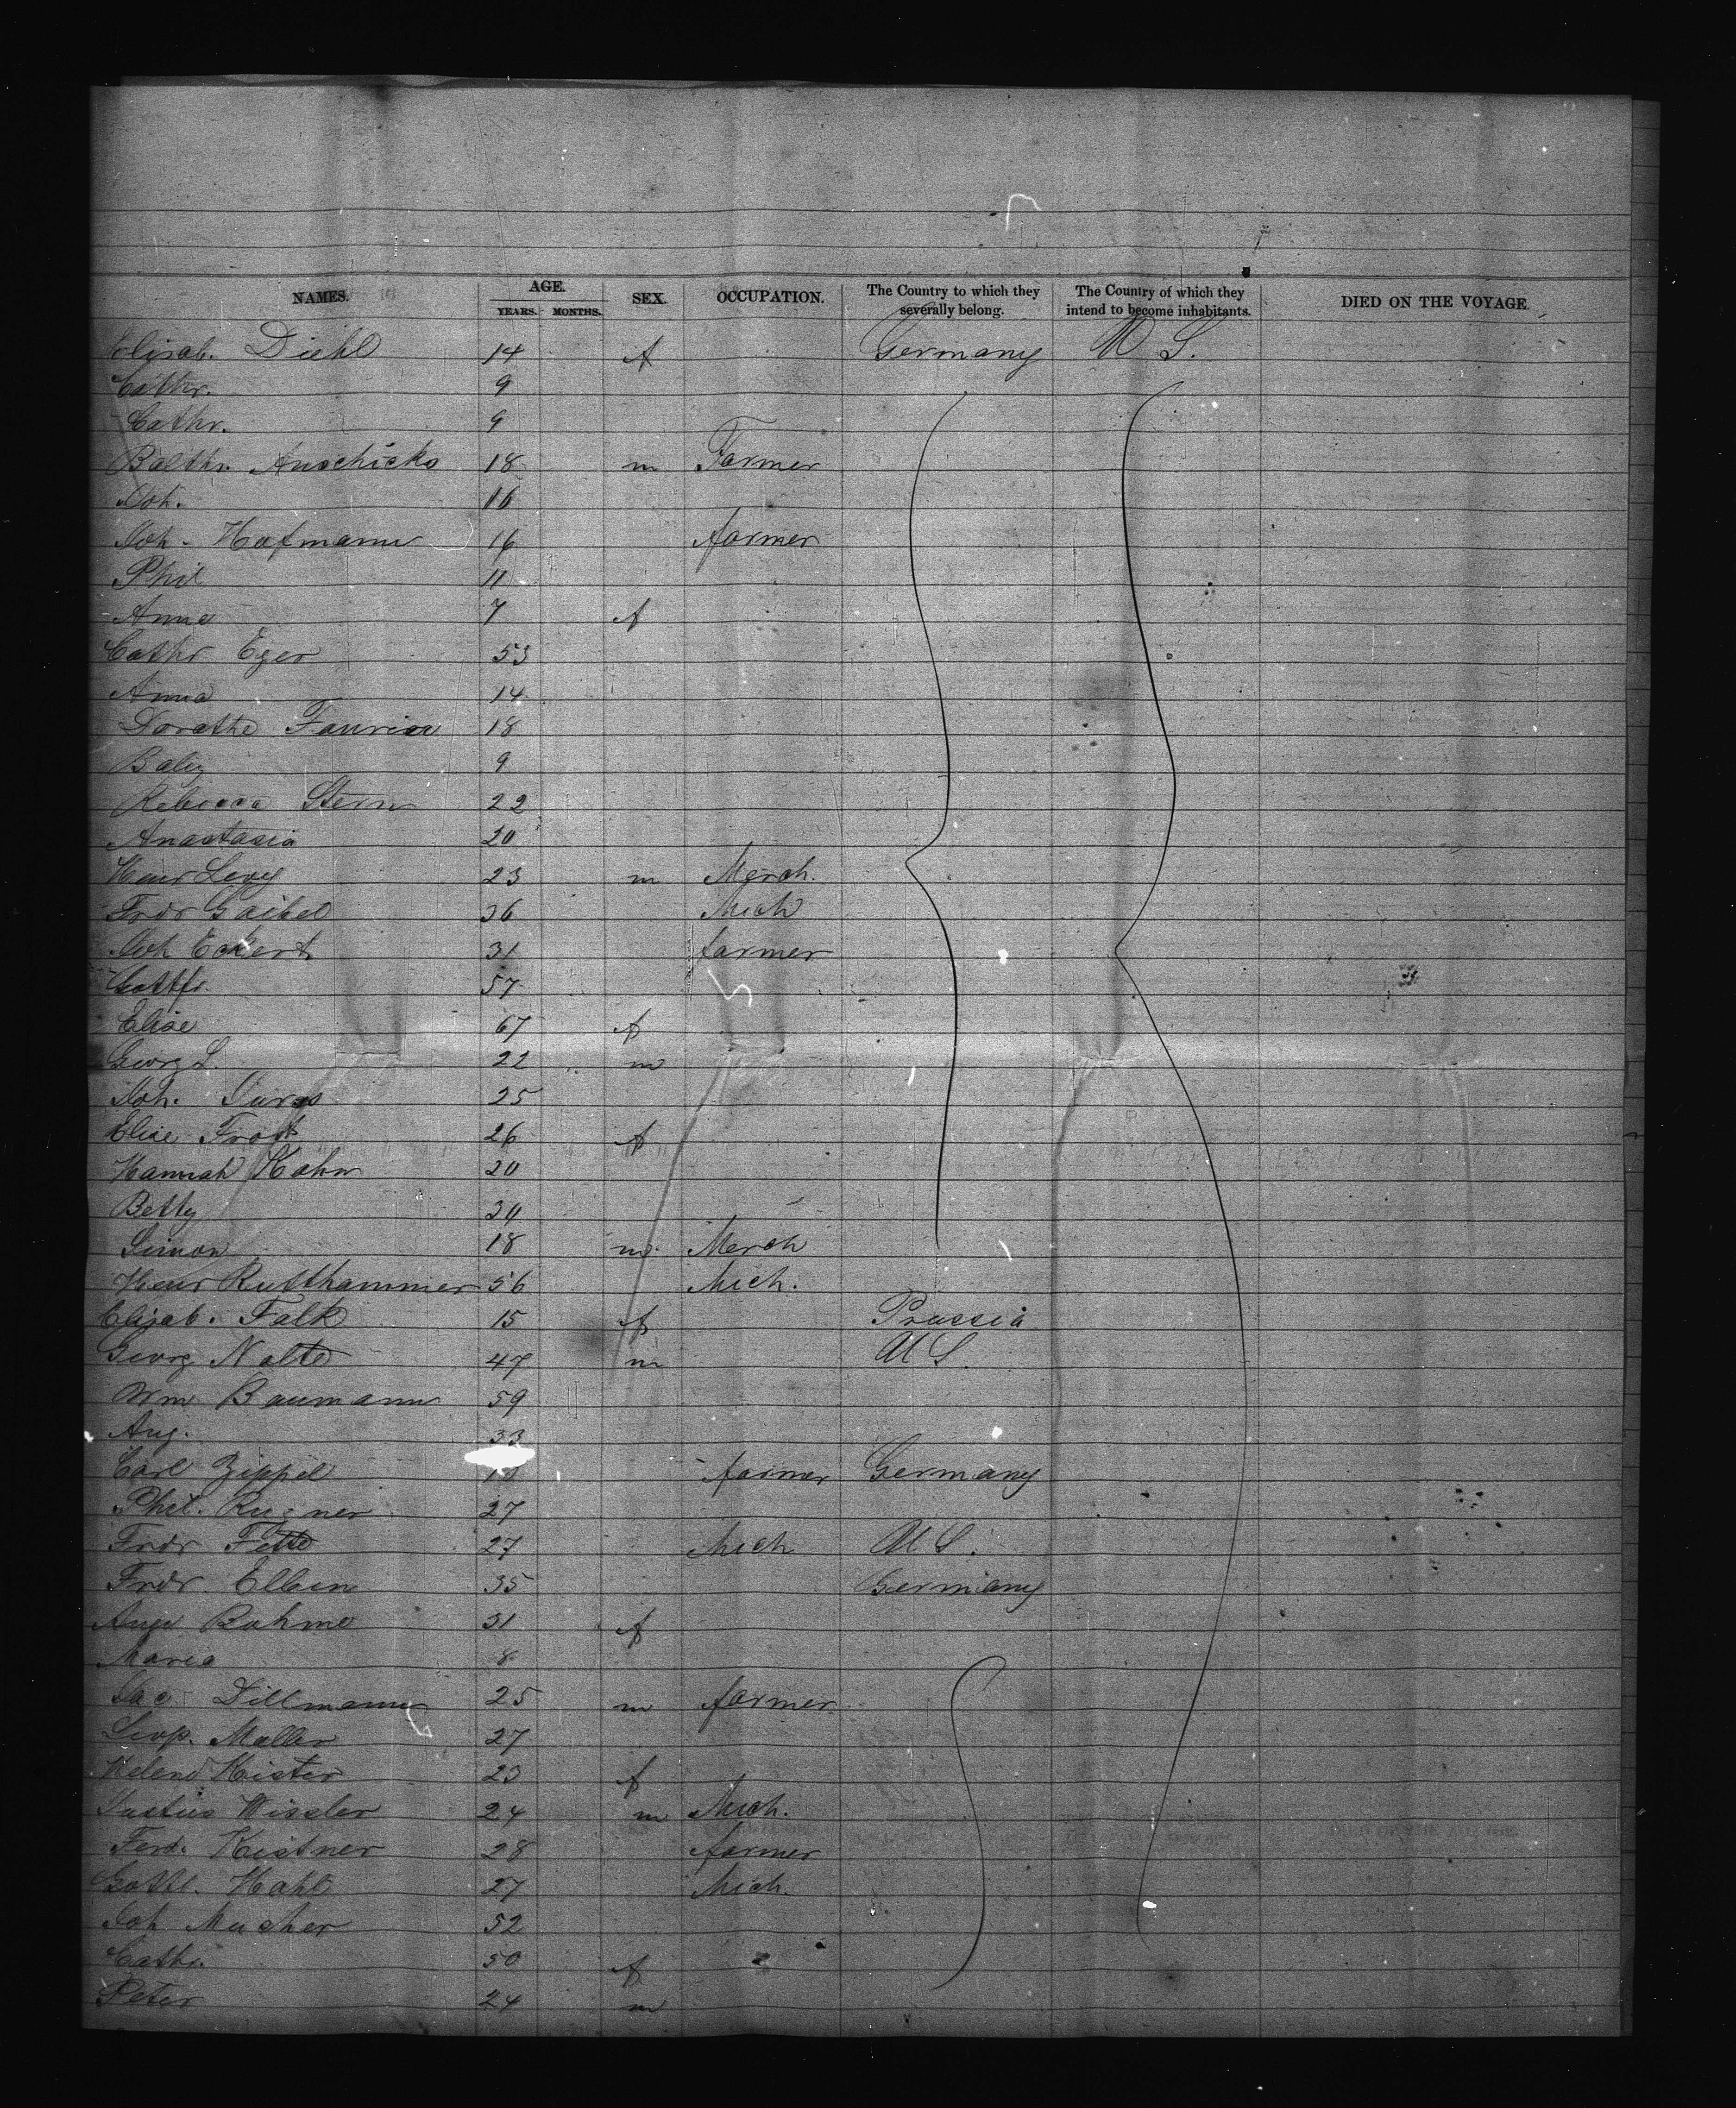 NAMES. AGE. SEX. OCCUPATION. The Country to which they severally belong. The Country of which they intend to become inhabitants. DIED ON THE VOYAGE.
YEARS. MONTHS.
Elisab. Diehl 14 f Germany U S.
Cathr. 9
Cathr. 9
Balthr. Anschicks 18 m Farmer
Joh. 16
Joh. Hofmann 16 farmer
Phil 11
Anna 7 f
Cathr Eger 53
Anna 14
Dorothe 18
9
Rebecca Stern 22
Anastasia 20
Heinr Levy 23 m Merch.
Fridr Gaibel 36 Mech
Joh Eckert 31 farmer
Gottfr. 57
Elise 67 f
Georg L. 22 m
Joh. 25
Elise Frost 26 f
Hannah Kahn 20
Betty
Simon 18 m Merch
Heinr Rulthammer 56 Mech.
Elisab. Falk 15 f Prussia
Georg Nolte 47 m U S.
Wm Baumann 59
Aug. 33
Carl Zippel farmer Germany
Phil. 27
Fridr Fette 27 Mech U S.
Fridr. 35 Germany
Bohme 31 f
Maria 8
Jac. Dillmann 25 m farmer
Leop. Moller 27
Helene Kister 23 f
Justus Wissler 24 m Mech.
Ferd. Kistner 28 farmer
Gottl. Hahl 27 Mech.
Joh Mucher 52
Cathr. 50 f
Peter 24 m